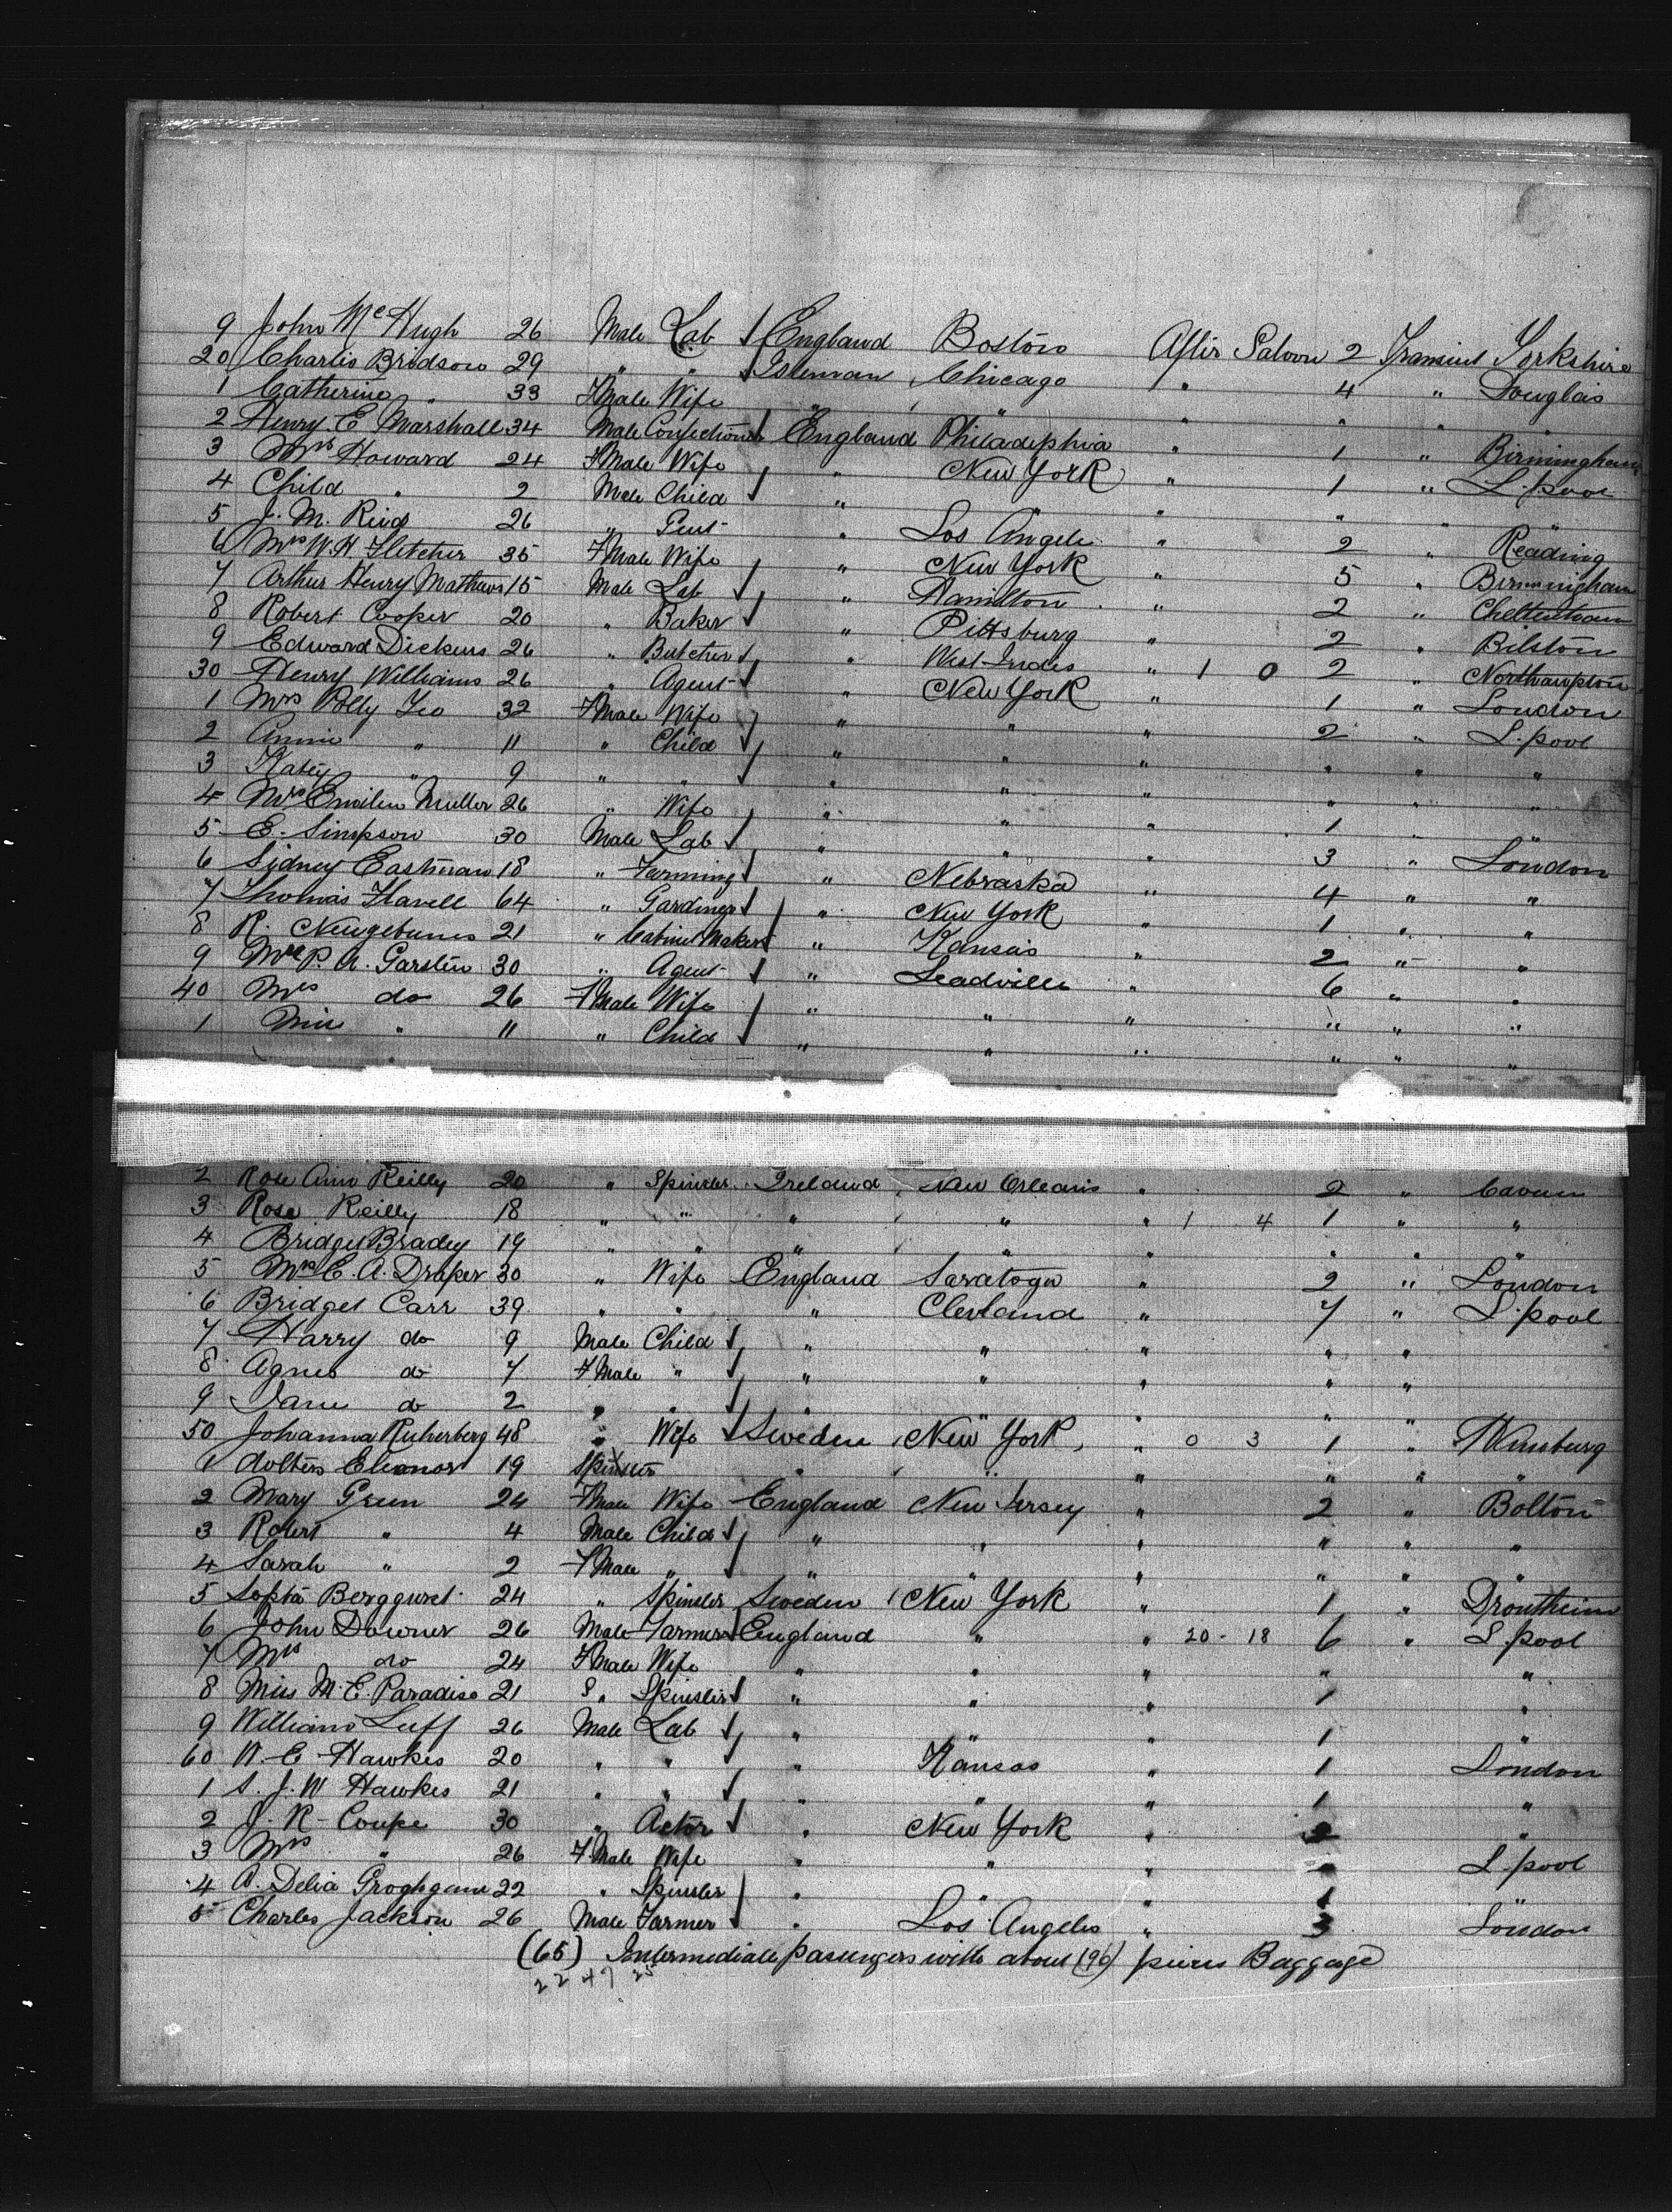 9 John McHugh 26 Male Lab England Boston After Saloon 2 Transient Yorkshire
20 Charles Bridson 29 " " Isleman Chicago " 4 " Douglas
1 Catherine " 33 FMale Wife " " " " " "
2 Henry E Marshall 34 Male Confectioner England Philadelphia " 1 " Birmingham
3 Mrs Howard 24 FMale Wife " New York " 1 " L.pool
4 Child " 2 Male Child " " " " " "
5 J. M. Reid 26 " Gent " Los Angele " 2 " Reading
6 Mrs W. H. Fletcher 35 FMale Wife " New York " 5 " Birmingham
7 Arthur Henry Mathews 15 Male Lab " Hamilton " 2 " Cheltenham
8 Robert Cooper 20 " Baker " Pittsburg " 2 " Bilston
9 Edward Dickens 26 " Butcher " West Indies " 1 0 2 " Northampton
30 Henry Williams 26 " Agent " New York " 1 " London
1 Mrs Polly Leo 32 FMale Wife " " " 2 " L.pool
2 Annie " 11 " Child " " " " " "
3 Katey " 9 " " " " " " " "
4 Mrs Emilen Muller 26 " Wife " " " 1 "
5 E. Simpson 30 Male Lab " " " 3 " London
6 Sidney Eastman 18 " Farming " Nebraska " 4 " "
7 Thomas Flavell 64 " Gardiner " New York " 1 " "
8 R. 21 " Cabinet Maker " Kansas " 2 " "
9 Mr P. A. Garstin 30 " Agent " Leadville " 6 " "
40 Mrs do 26 FMale Wife " " " " " "
1 Miss " 11 " Child " " " " " "
2 Rose Ann Reilly 20 " Spinster Ireland New Orleans " 2 " Cavan
3 Rose Reilly 18 " " " " " 1 4 1 " "
4 Bridget Bradey 19 " " " " " " " "
5 Mrs C. A. Draper 30 " Wife England Saratoga " 2 " London
6 Bridget Carr 39 " " " Clevland " 7 " L.pool
7 Harry do 9 Male Child " " " " "
8 Agnes do 7 FMale " " " " " "
9 Jane do 2 " " " " " " "
50 Johanna Ruherberg 48 " Wife Sweden New York " 0 3 1 " Hamburg
1 dolters Eleonor 19 Spinster " " " " " "
2 Mary Green 24 FMale Wife England New Jersey " 2 " Bolton
3 Robert " 4 Male Child " " " " " "
4 Sarah " 2 FMale " " " " " " "
5 Sophia Bergguret 24 " Spinster Sweden New York " 1 " Drontheim
6 John Downer 26 Male Farmer England " " 20 - 18 6 " L.pool
7 Mrs do 24 FMale Wife " " " " "
8 Miss M. E. Paradise 21 " Spinster " " " 1 "
9 William Luff 26 Male Lab " " " 1 "
60 W. E Hawkes 20 " " " Kansas " 1 London
1 S. J. W Hawkes 21 " " " " " 1 "
2 J. R. Coupe 30 " Actor " New York " 2 "
3 Mrs " 26 F.Male Wife " " " " L.pool
4 A. Delia 22 " Spinster " " " 1 "
5 Charles Jackson 26 Male Farmer " Los Angeles " 3 London
(65) Intermediate passengers with about (96) pieces Baggage
22 47 25